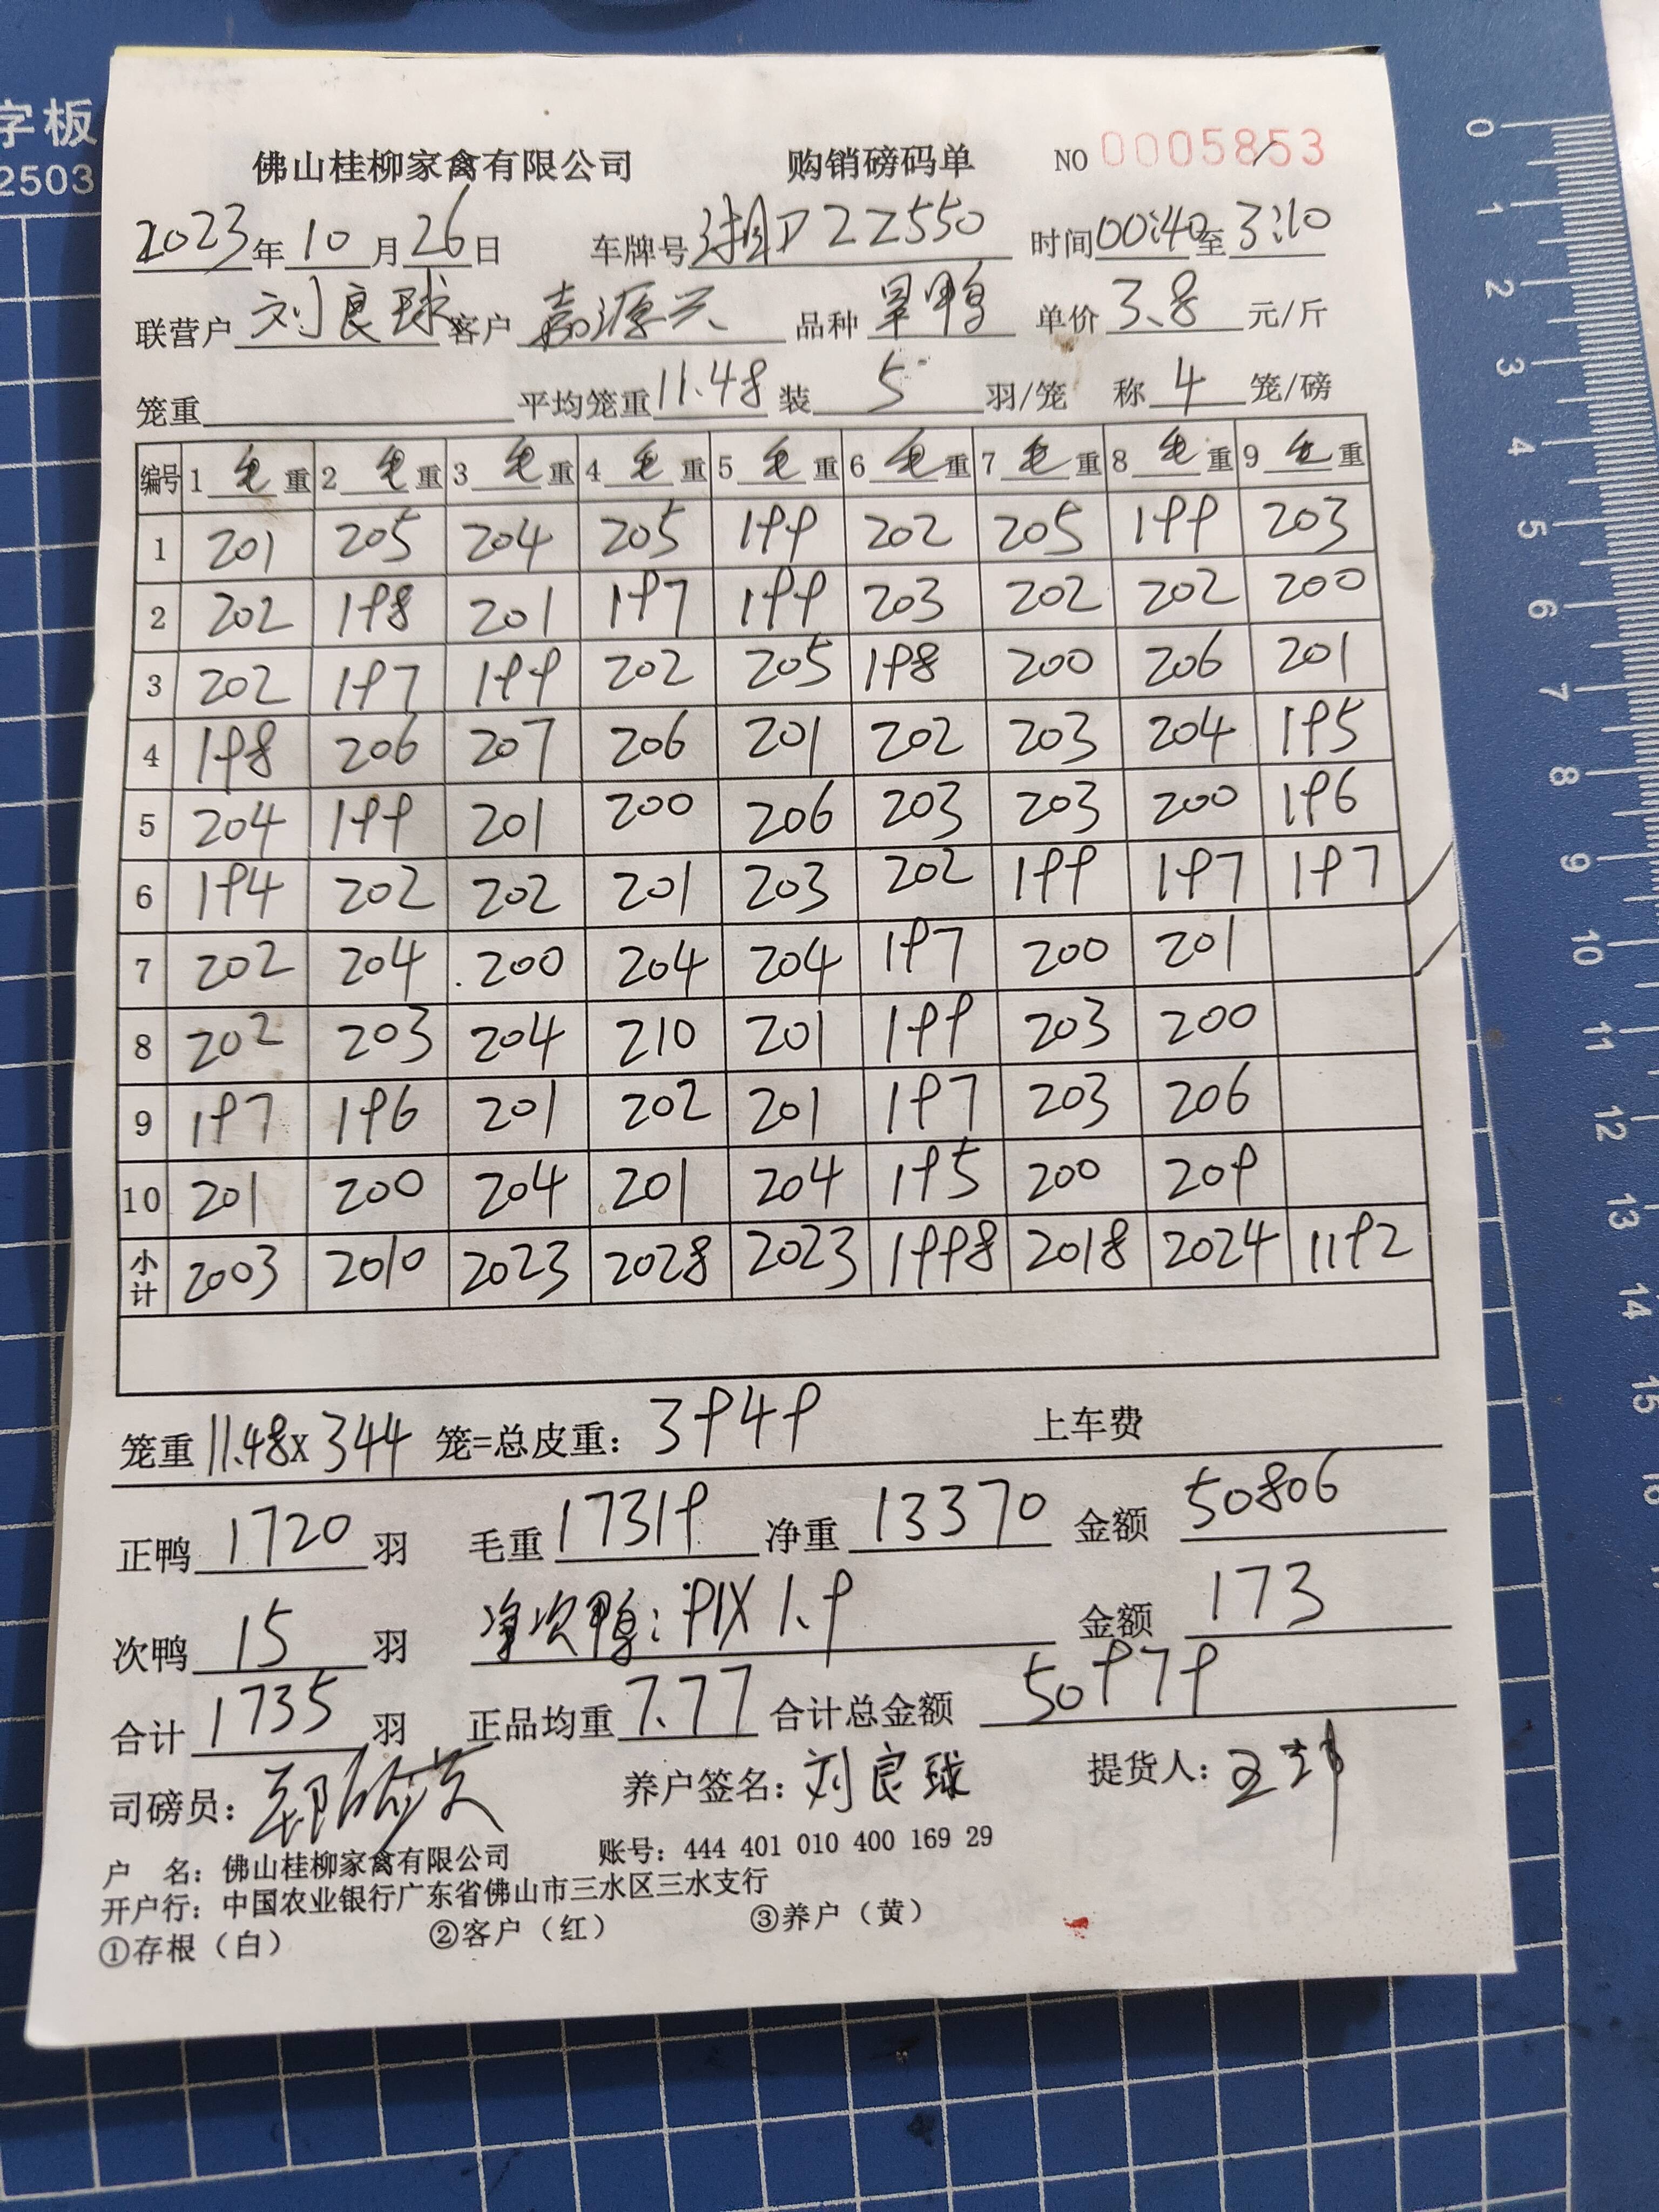 字板
2503
佛山桂柳家禽有限公司 购销磅码单 NO 0005853
2023年10月26日 车牌号 湘D22550 时间00:40至3:10
联营户 刘良球 客户 嘉源兴 品种 旱鸭 单价 3.8 元/斤
笼重 平均笼重 11.48 装 5 羽/笼 称 4 笼/磅
编号 1 毛 重 2 毛 重 3 毛 重 4 毛 重 5 毛 重 6 毛 重 7 毛 重 8 毛 重 9 毛 重
1 201 205 204 205 199 202 205 199 203
2 202 198 201 197 199 203 202 202 200
3 202 197 199 202 205 198 200 206 201
4 198 206 207 206 201 202 203 204 195
5 204 199 201 200 206 203 203 200 196
6 194 202 202 201 203 202 199 197 197
7 202 204 200 204 204 197 200 201
8 202 203 204 210 201 199 203 200
9 197 196 201 202 201 197 203 206
10 201 200 204 201 204 195 200 209
小计 2003 2010 2023 2028 2023 1998 2018 2024 1192
笼重 11.48x344 笼=总皮重: 3949 上车费
正鸭 1720 羽 毛重 17319 净重 13370 金额 50806
次鸭 15 羽 净次鸭: 91X1.9 金额 173
合计 1735 羽 正品均重 7.77 合计总金额 50979
司磅员: 养户签名: 刘良球 提货人:
户 名: 佛山桂柳家禽有限公司 账号: 444 401 010 400 169 29
开户行: 中国农业银行广东省佛山市三水区三水支行
①存根(白) ②客户(红) ③养户(黄)
0
1
2
3
4
5
6
7
8
9
10
11
12
13
14
15